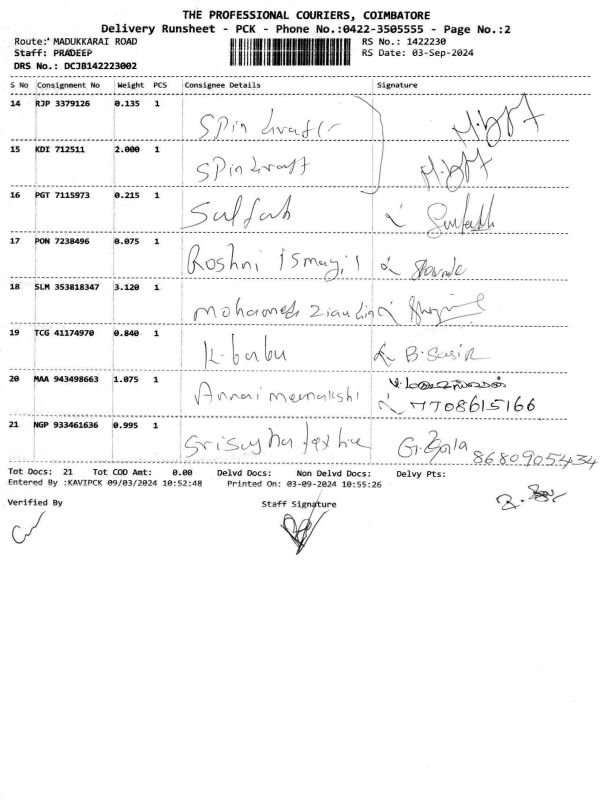 THE PROFESSIONAL COURIERS, COIMBATORE
Delivery Runsheet - PCK - Phone No.:0422-3505555 - Page No.:2
Route: MADUKKARAI ROAD RS No.: 1422230
Staff: PRADEEP RS Date: 03-Sep-2024
DRS No.: DCJB142223002
S No Consignment No Weight PCS Consignee Details Signature
14 RJP 3379126 0.135 1 Spin
15 KDI 712511 2.000 1 Spin
16 PGT 7115973 0.215 1
17 PON 7238496 0.075 1 Roshni Ismayil
18 SLM 353818347 3.120 1 mohamed
19 TCG 41174970 0.840 1 K. babu B. Sasik
20 MAA 943498663 1.075 1 Annai meenakshi
7708615166
21 NGP 933461636 0.995 1 8680905434
Tot Docs: 21 Tot COD Amt: 0.00 Delvd Docs: Non Delvd Docs: Delvy Pts:
Entered By :KAVIPCK 09/03/2024 10:52:48 Printed On: 03-09-2024 10:55:26
Verified By Staff Signature